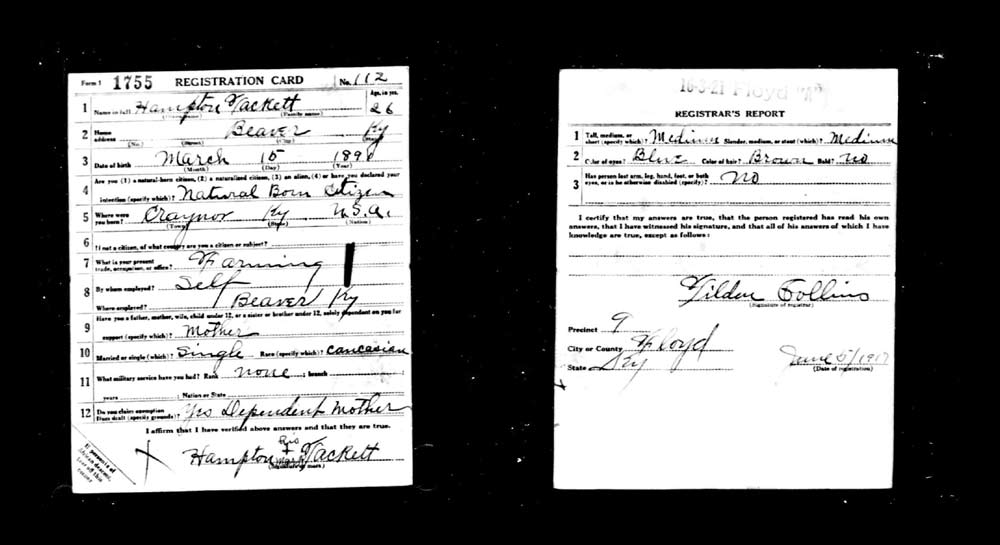 Form 1 1755 REGISTRATION CARD No. 112
1 Name in full Hampton Tackett Age, in yrs. 26
(Family name)
2 Home address Beaver Ky
(No.) (Street) (City)
3 Date of birth March 15 1890
(Month) (Day) (Year)
Are you (1) a natural-born citizen, (2) a naturalized citizen, (3) an alien, (4) or have you declared your
4 intention (specify which)? Natural Born Citizen
5 Where were you born? Craynor Ky U.S.A.
(Town) (State) (Nation)
6 If not a citizen, of what country are you a citizen or subject?
7 What is your present trade, occupation, or office? Farming
8 By whom employed? Self
Where employed? Beaver Ky
Have you a father, mother, wife, child under 12, or a sister or brother under 12, solely dependent on you for
9 support (specify which)? Mother
10 Married or single (which)? Single Race (specify which)? Caucasian
11 What military service have you had? Rank none ; branch
years ; Nation or State
12 Do you claim exemption from draft (specify grounds)? Yes Dependent Mother
I affirm that I have verified above answers and that they are true.
X Hampton his X mark Tackett
(Signature or mark)
If person is of African descent, tear off this corner
16-3-21 Floyd "A"
REGISTRAR'S REPORT
1 Tall, medium, or short (specify which)? Medium Slender, medium, or stout (which)? Medium
2 Color of eyes? Blue Color of hair? Brown Bald? No
3 Has person lost arm, leg, hand, foot, or both eyes, or is he otherwise disabled (specify)? No
I certify that my answers are true, that the person registered has read his own
answers, that I have witnessed his signature, and that all of his answers of which I have
knowledge are true, except as follows:
Tilden Collins
(Signature of registrar)
Precinct 9
City or County Floyd
State Ky June 5/1917
(Date of registration)